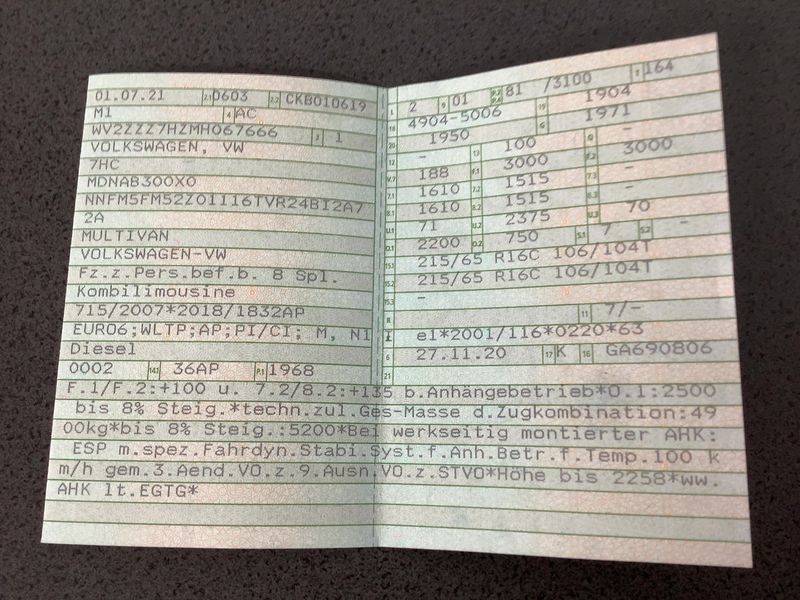 01.07.21 2.1 0603 2.2 CKB010619
M1 4 AC
WV2ZZZ7HZMH067666 3 1
VOLKSWAGEN, VW
7HC
MDNAB300X0
NNFM5FM52Z01116TVR24BI2A7
2A
MULTIVAN
VOLKSWAGEN-VW
Fz.z.Pers.bef.b. 8 Spl.
Kombilimousine
715/2007*2018/1832AP
EURO6;WLTP;AP;PI/CI; M, N1
Diesel
0002 14.1 36AP P.1 1968
L 2 9 01 P.2 P.4 81 /3100 T 164
18 4904-5006 19 1904
20 1950 G 1971
12 - 13 100 Q -
V.7 188 F.1 3000 F.2 3000
7.1 1610 7.2 1515 7.3 -
8.1 1610 8.2 1515 8.3 -
U.1 71 U.2 2375 U.3 70
O.1 2200 O.2 750 S.1 7 S.2 -
15.1 215/65 R16C 106/104T
15.2 215/65 R16C 106/104T
15.3 -
R 11 7/-
K e1*2001/116*0220*63
6 27.11.20 17 K 16 GA690806
21
F.1/F.2:+100 u. 7.2/8.2:+135 b.Anhängebetrieb*O.1:2500
bis 8% Steig.*techn.zul.Ges-Masse d.Zugkombination:49
00kg*bis 8% Steig.:5200*Bei werkseitig montierter AHK:
ESP m.spez.Fahrdyn.Stabi.Syst.f.Anh.Betr.f.Temp.100 k
m/h gem.3.Aend.VO.z.9.Ausn.VO.z.STVO*Höhe bis 2258*ww.
AHK lt.EGTG*